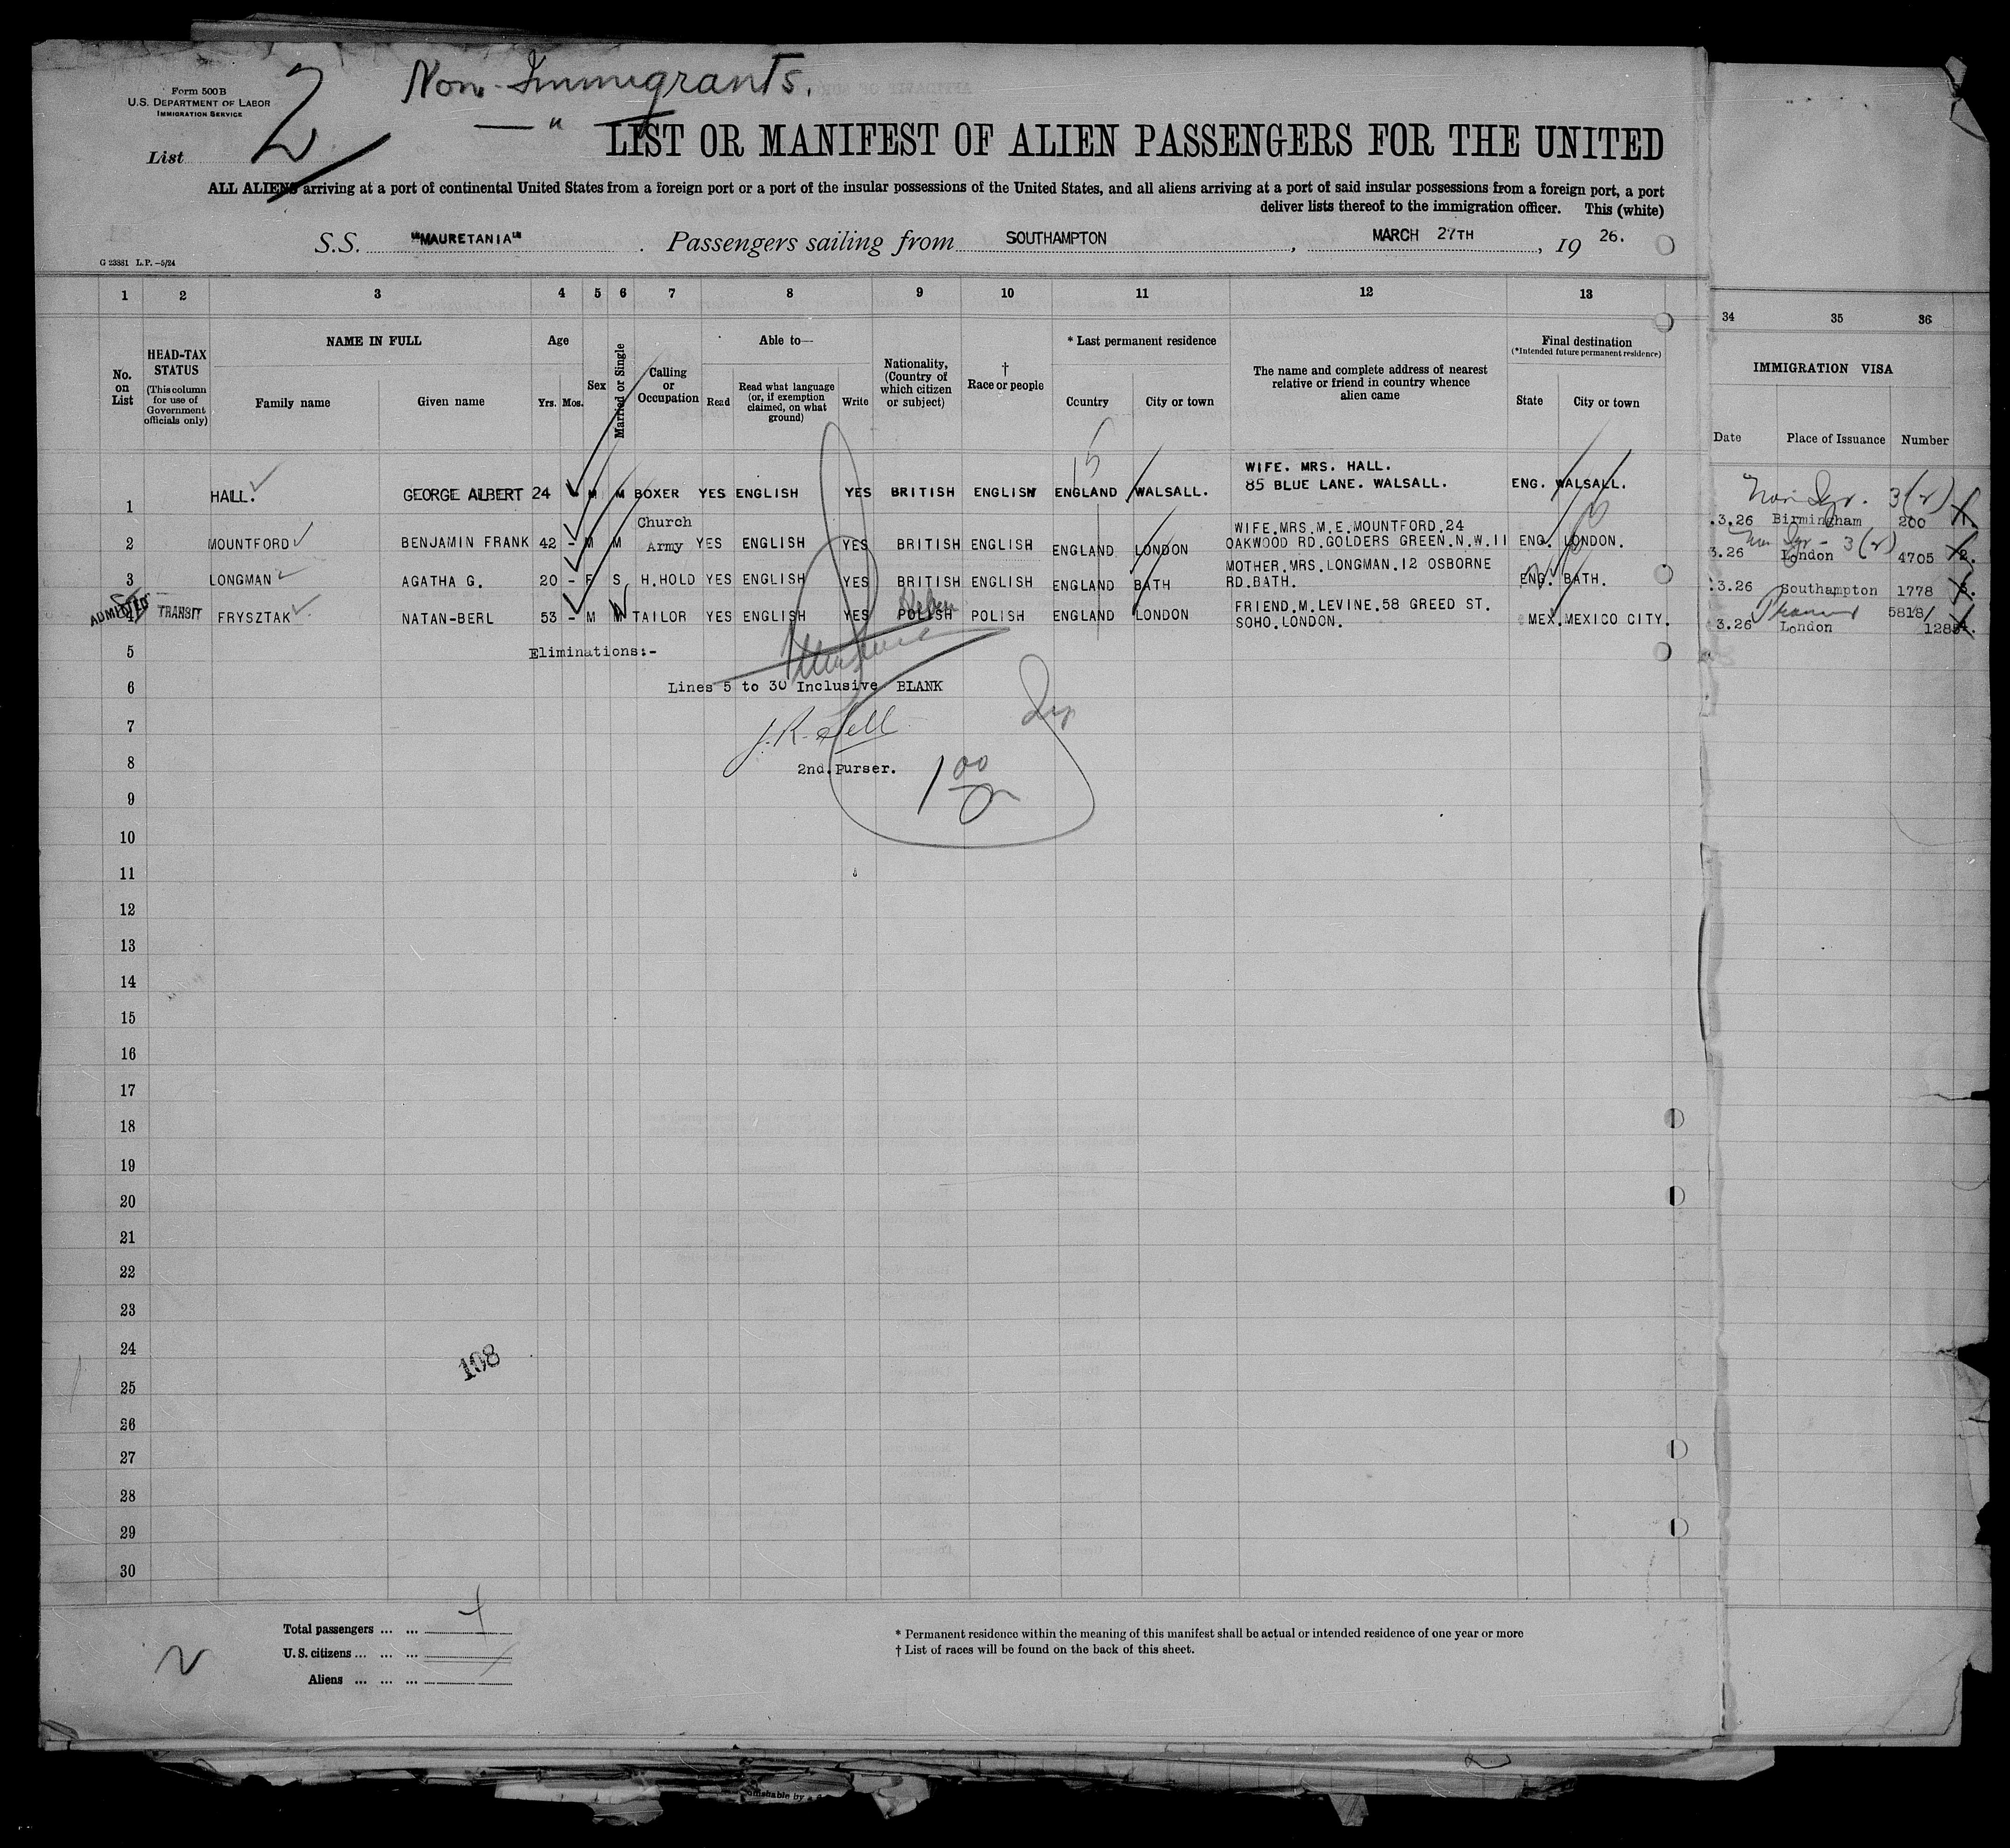 Non-Immigrants.
Form 500 B
U.S. DEPARTMENT OF LABOR
IMMIGRATION SERVICE
List 2
LIST OR MANIFEST OF ALIEN PASSENGERS FOR THE UNITED
ALL ALIENS arriving at a port of continental United States from a foreign port or a port of the insular possessions of the United States, and all aliens arriving at a port of said insular possessions from a foreign port, a port
deliver lists thereof to the immigration officer. This (white)
S.S. "MAURETANIA". Passengers sailing from SOUTHAMPTON, MARCH 27TH, 19 26.
G 23381 L.P.-5/24
1 2 3 4 5 6 7 8 9 10 11 12 13 34 35 36
No. on List
HEAD-TAX STATUS
(This column for use of Government officials only)
NAME IN FULL
Family name Given name
Age
Yrs. Mos.
Sex
Married or Single
Calling or Occupation
Able to—
Read
Read what language (or, if exemption claimed, on what ground)
Write
Nationality, (Country of which citizen or subject)
† Race or people
* Last permanent residence
Country City or town
The name and complete address of nearest relative or friend in country whence alien came
Final destination
(*Intended future permanent residence)
State City or town
IMMIGRATION VISA
Date Place of Issuance Number
1 HALL. GEORGE ALBERT 24 - M M BOXER YES ENGLISH YES BRITISH ENGLISH ENGLAND WALSALL. WIFE. MRS. HALL. 85 BLUE LANE. WALSALL. ENG. WALSALL. .3.26 Birmingham 200 1.
2 MOUNTFORD BENJAMIN FRANK 42 - M M Church Army YES ENGLISH YES BRITISH ENGLISH ENGLAND LONDON WIFE.MRS.M.E.MOUNTFORD.24 OAKWOOD RD.GOLDERS GREEN.N.W.11 ENG. LONDON. 3.26 London 4705 2.
3 LONGMAN AGATHA G. 20 - F S H.HOLD YES ENGLISH YES BRITISH ENGLISH ENGLAND BATH MOTHER.MRS.LONGMAN.12 OSBORNE RD.BATH. ENG. BATH. .3.26 Southampton 1778 3.
ADMITTED
4 TRANSIT FRYSZTAK NATAN-BERL 53 - M M TAILOR YES ENGLISH YES POLISH POLISH ENGLAND LONDON FRIEND.M.LEVINE.58 GREED ST. SOHO.LONDON. MEX. MEXICO CITY. 3.26 London 5818/
5 Eliminations:-
6 Lines 5 to 30 Inclusive BLANK
7
8 2nd.Purser.
9
10
11
12
13
14
15
16
17
18
19
20
21
22
23
24
25
26
27
28
29
30
108
Total passengers ... ...
U.S. citizens ... ... ...
Aliens ... ... ...
* Permanent residence within the meaning of this manifest shall be actual or intended residence of one year or more
† List of races will be found on the back of this sheet.